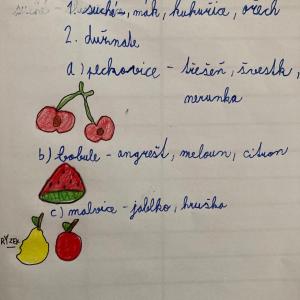 1. suché - mák, kukuřice, ořech
2. dužnaté
a) peckovice - třešeň, švestk
meruňka
b) bobule - angrešt, meloun, citron
c) malvice - jablko, hruška